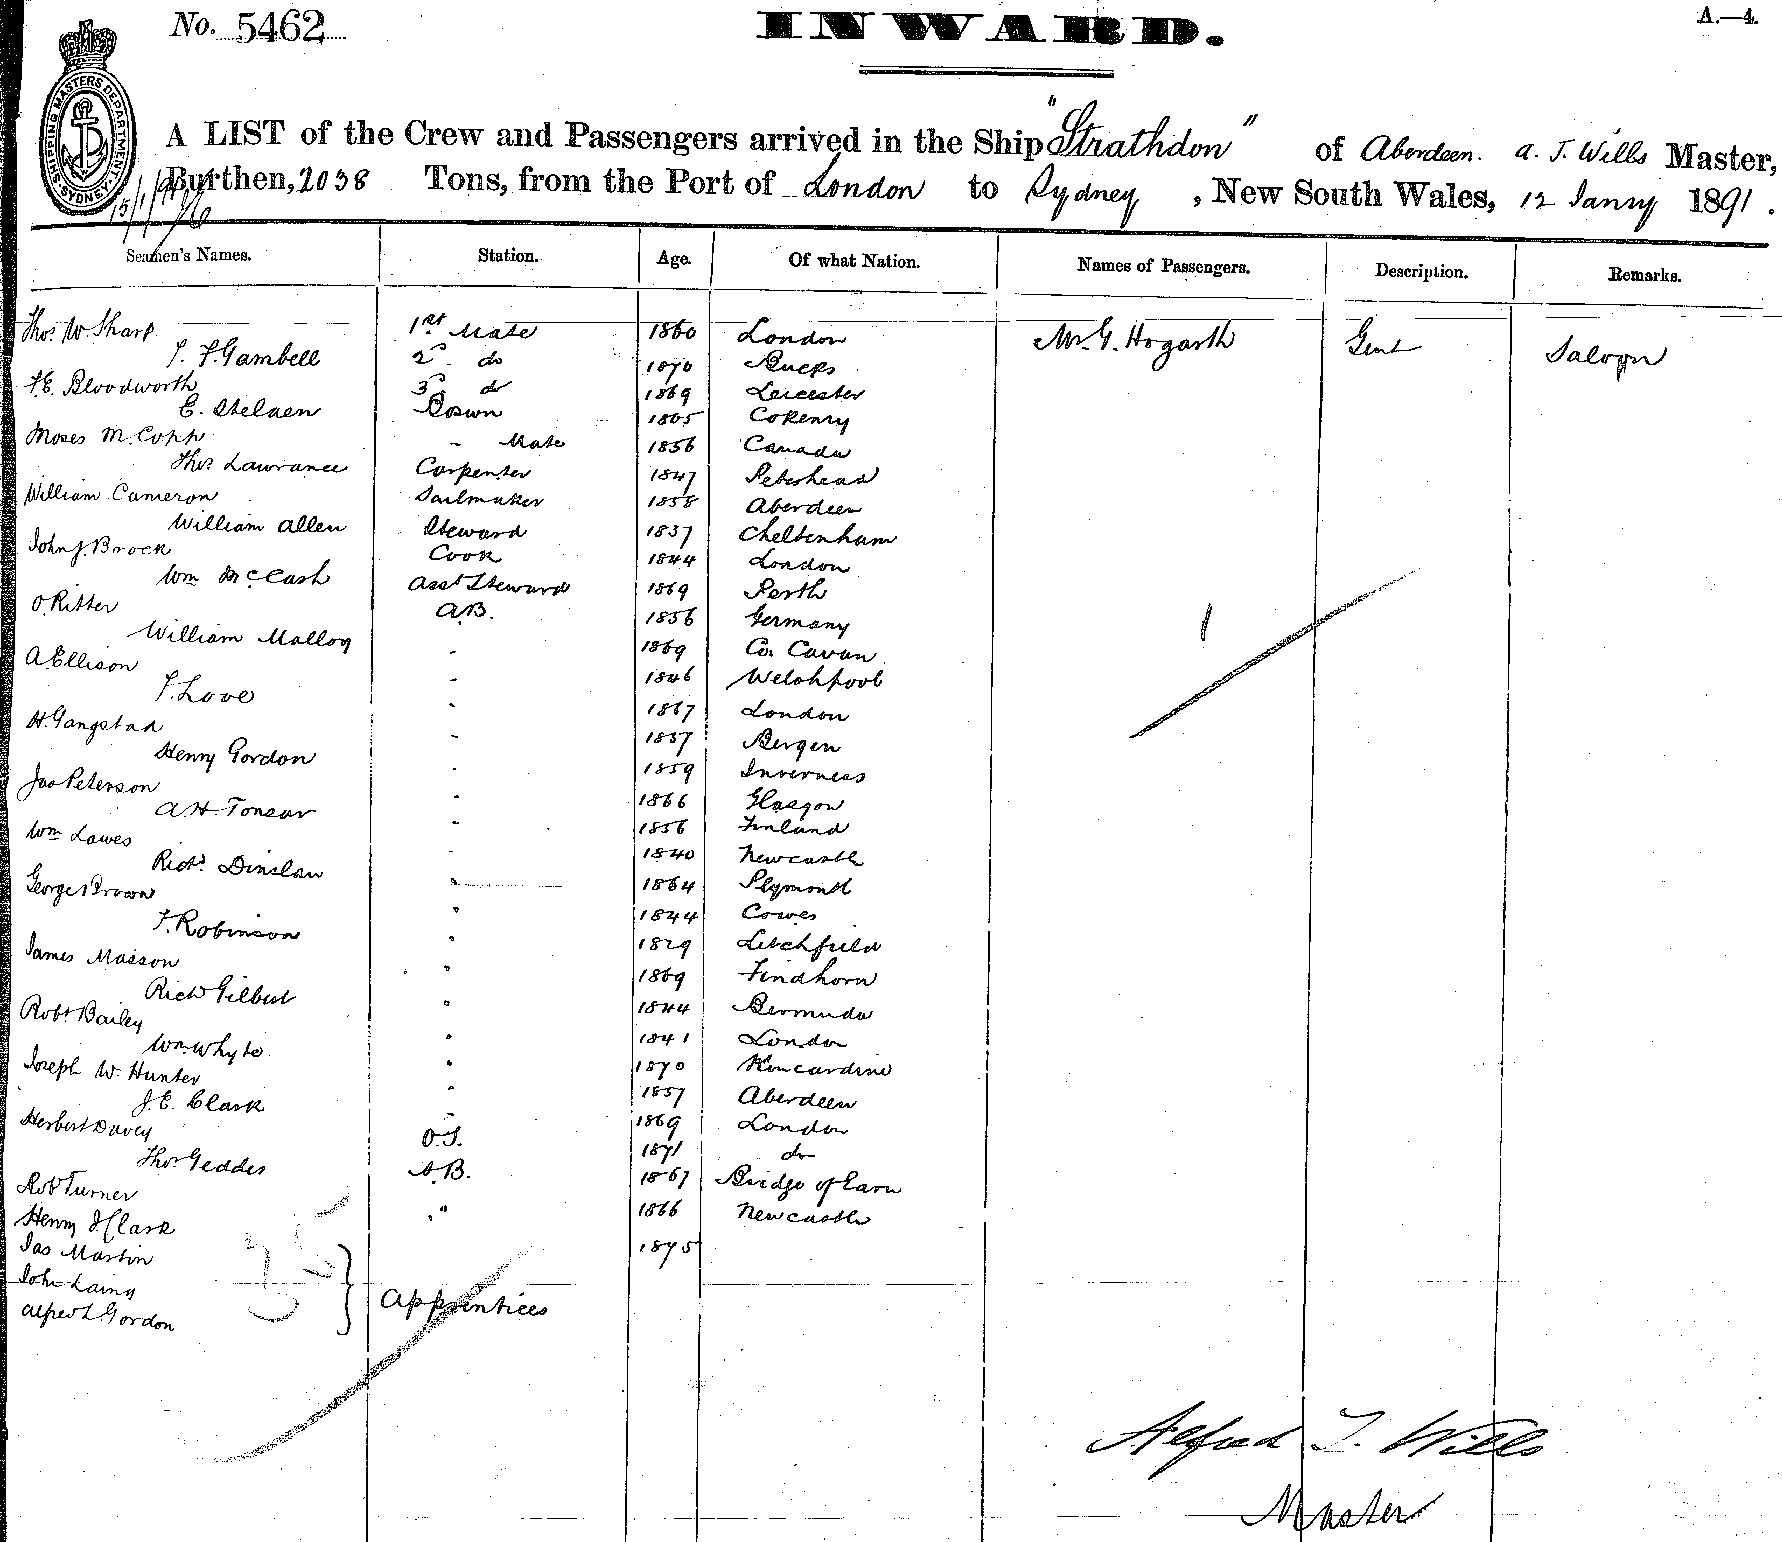 No. 5462
INWARD.
A.—4.
SHIPPING MASTERS DEPARTMENT SYDNEY
A LIST of the Crew and Passengers arrived in the Ship "Strathdon" of Aberdeen. A. T. Wills Master,
Burthen, 2038 Tons, from the Port of London to Sydney, New South Wales, 12 Janry 1891.
Seamen's Names. Station. Age. Of what Nation. Names of Passengers. Description. Remarks.
Thos. W. Sharp 1st Mate 1860 London Mr. G. Hogarth Gent Saloon
T. F. Gambell 2d do 1870 Bucks
F. E. Bloodworth 3d do 1869 Leicester
E. Bosun 1865
Moses M. Copp " Mate 1856 Canada
Thos Lawrance Carpenter 1847 Peterhead
William Cameron Sailmaker 1858 Aberdeen
William Allen Steward 1837 Cheltenham
John J. Brock Cook 1844 London
Wm McCash Asst Steward 1869 Perth
O. Ritter A.B. 1856 Germany
William Malloy " 1869 Co. Cavan
A. Ellison " 1846 Welchpool
T. Love " 1867 London
H. Gangstad " 1857 Bergen
Henry Gordon " 1859 Inverness
Jas Peterson " 1866 Glasgow
A. H. " 1856 Finland
Wm Lawes " 1840 Newcastle
Richd. " 1864 Plymouth
George Brown " 1844 Cowes
T. Robinson " 1829 Litchfield
James Masson " 1869 Findhorn
Richd Gilbert " 1844 Bermuda
Robt Bailey " 1841 London
Wm. Whyte " 1870 Kincardine
Joseph W. Hunter " 1857 Aberdeen
J. E. Clark " 1869 London
Herbert Davey O.S. 1871 do
Thos. Geddes A.B. 1867 Bridge of Earn
Robt Turner " 1866 Newcastle
Henry J Clark 1875
Jas Martin
John Laing Apprentices
Alfred L. Gordon
1
Alfred T. Wills
Master